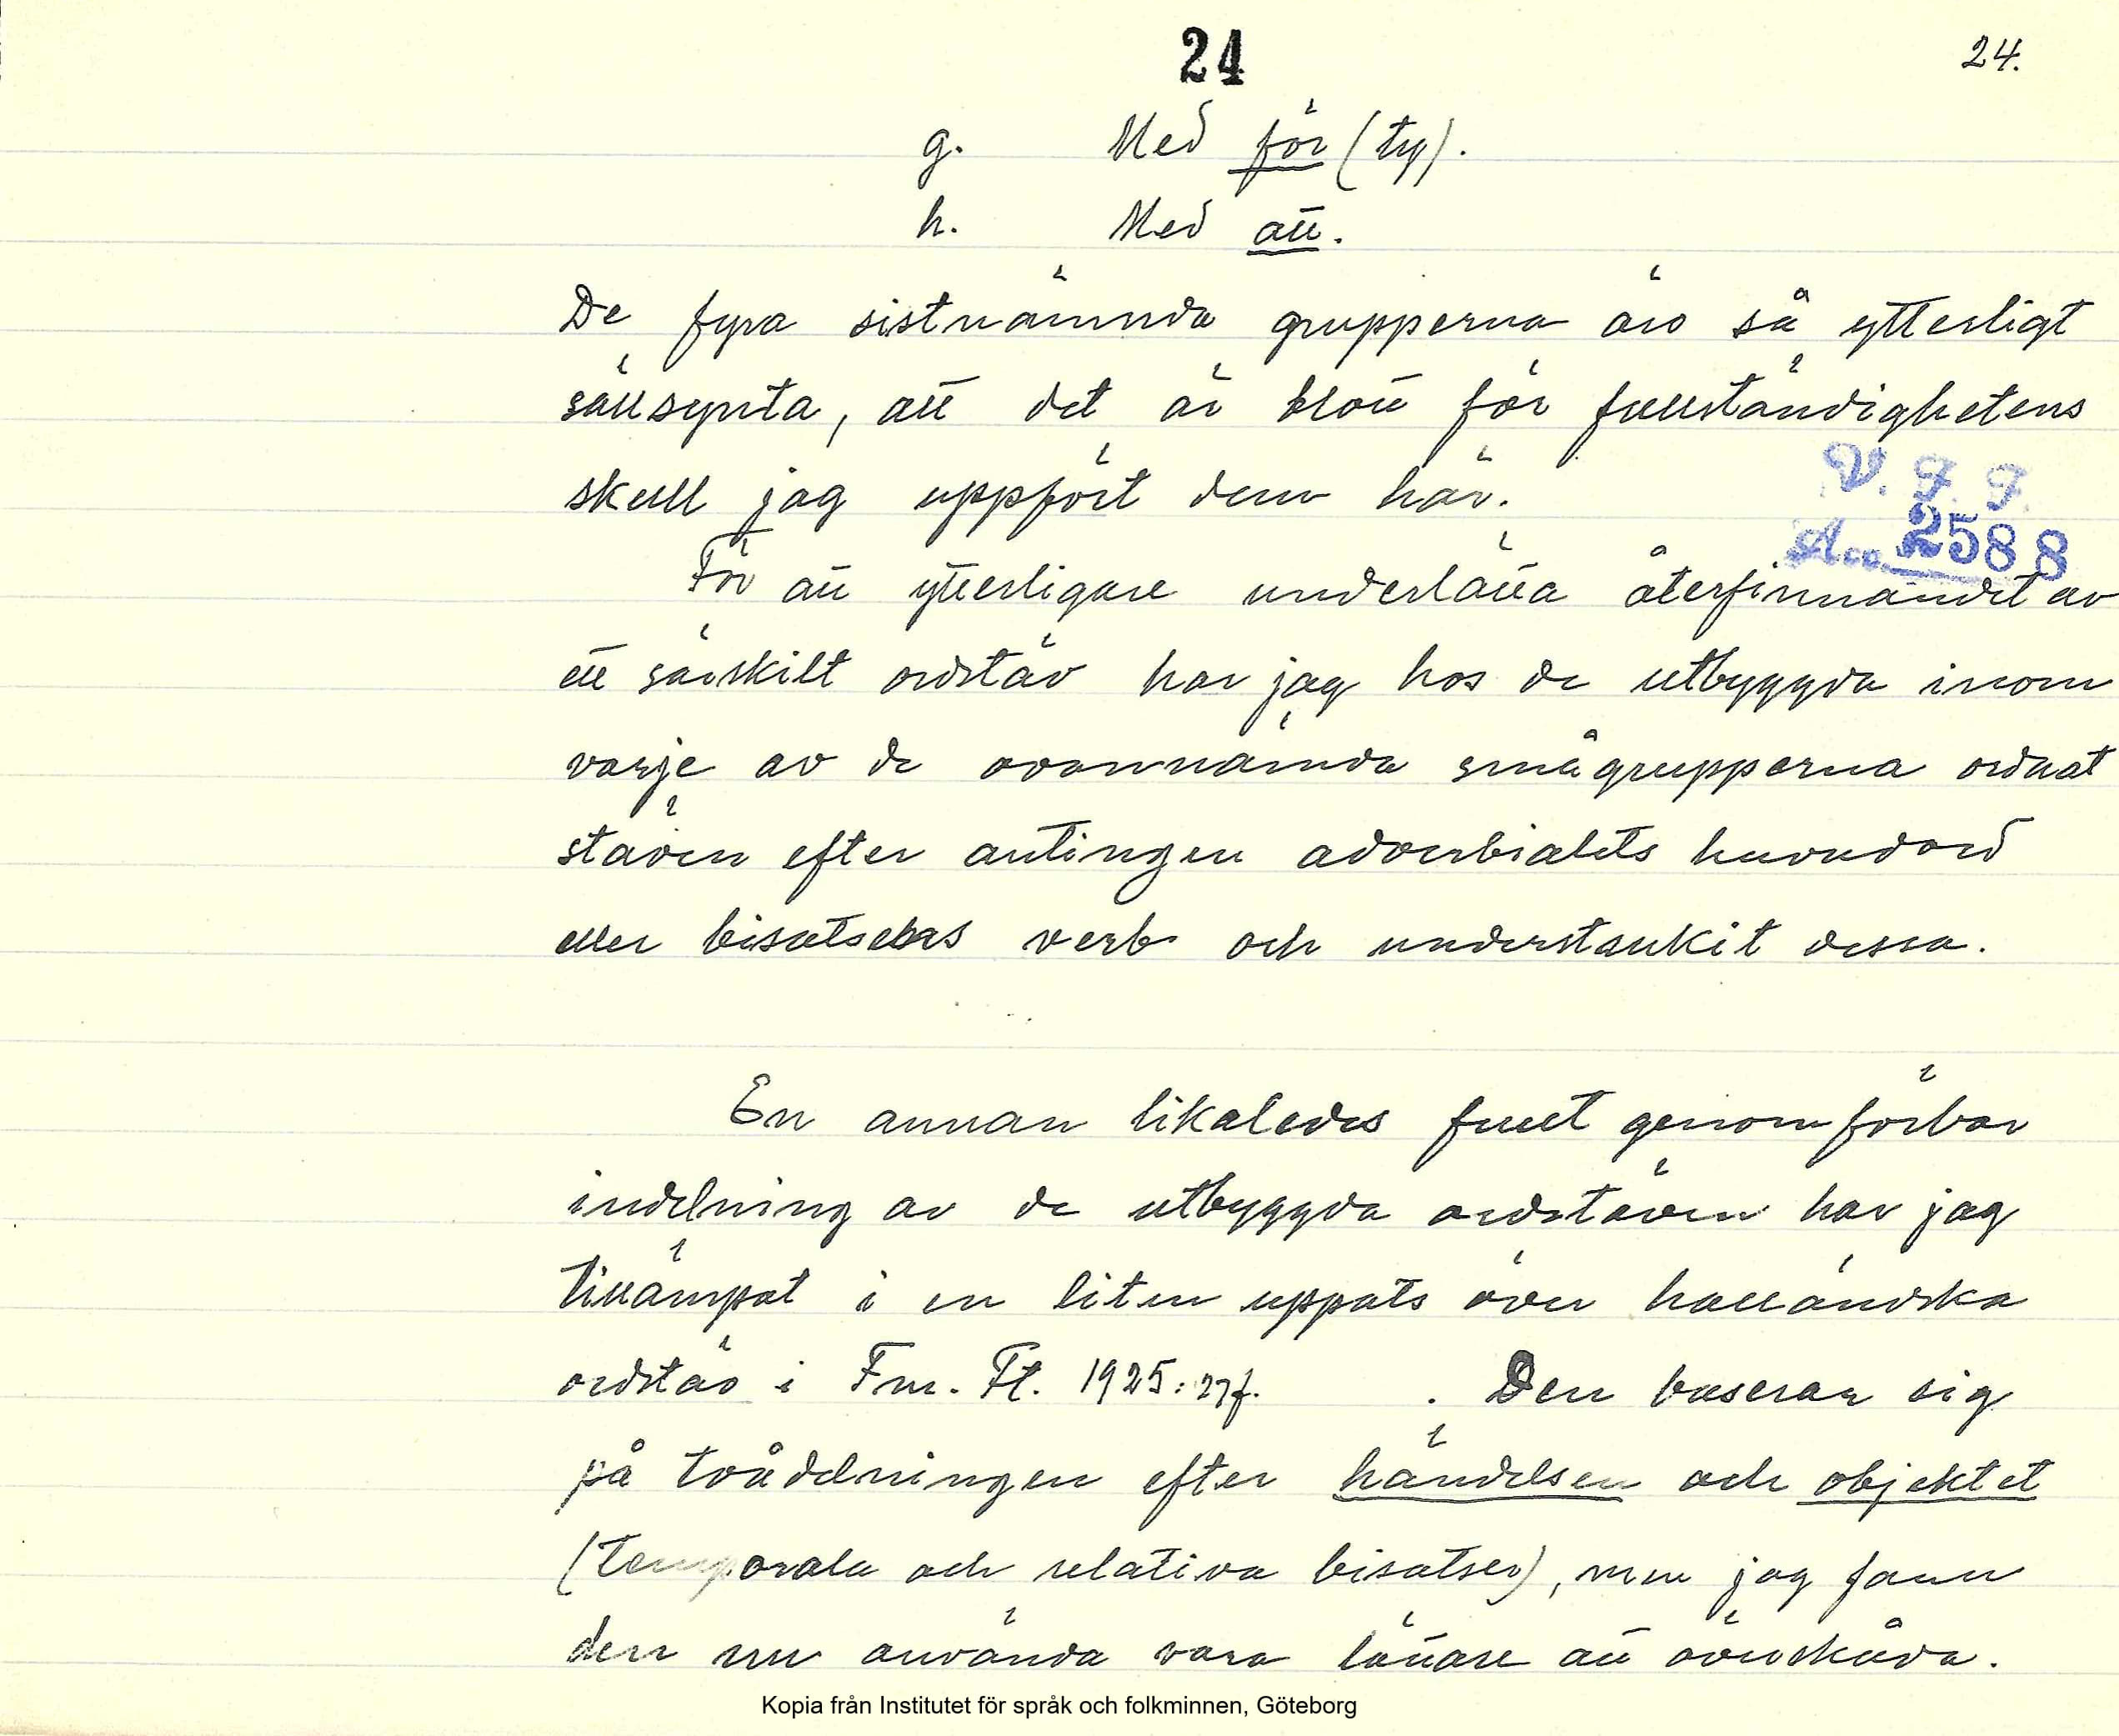 24
24.
g. Med för (ty).
h. Med att.
De fyra sistnämnda grupperna äro så ytterligt
sällsynta, att det är blott för fullständighetens
skull jag uppfört dem här.
V. F. F.
Acc. 2588
För att ytterligare underlätta återfinnandet av
ett särskilt ordstäv har jag hos de utbyggda inom
varje av de ovannämnda smågrupperna ordnat
stäven efter antingen adverbialets huvudord
eller bisatsens verb och understrukit dessa.
En annan likaledes fullt genomförbar
indelning av de utbyggda ordstäven har jag
tillämpat i en liten uppsats över halländska
ordstäv i Fm. Ft. 1925: 27f. . Den baserar sig
på tvådelningen efter händelsen och objektet
(temporala och relativa bisatser), men jag fann
den nu använda vara lättare att överskåda.
Kopia från Institutet för språk och folkminnen, Göteborg